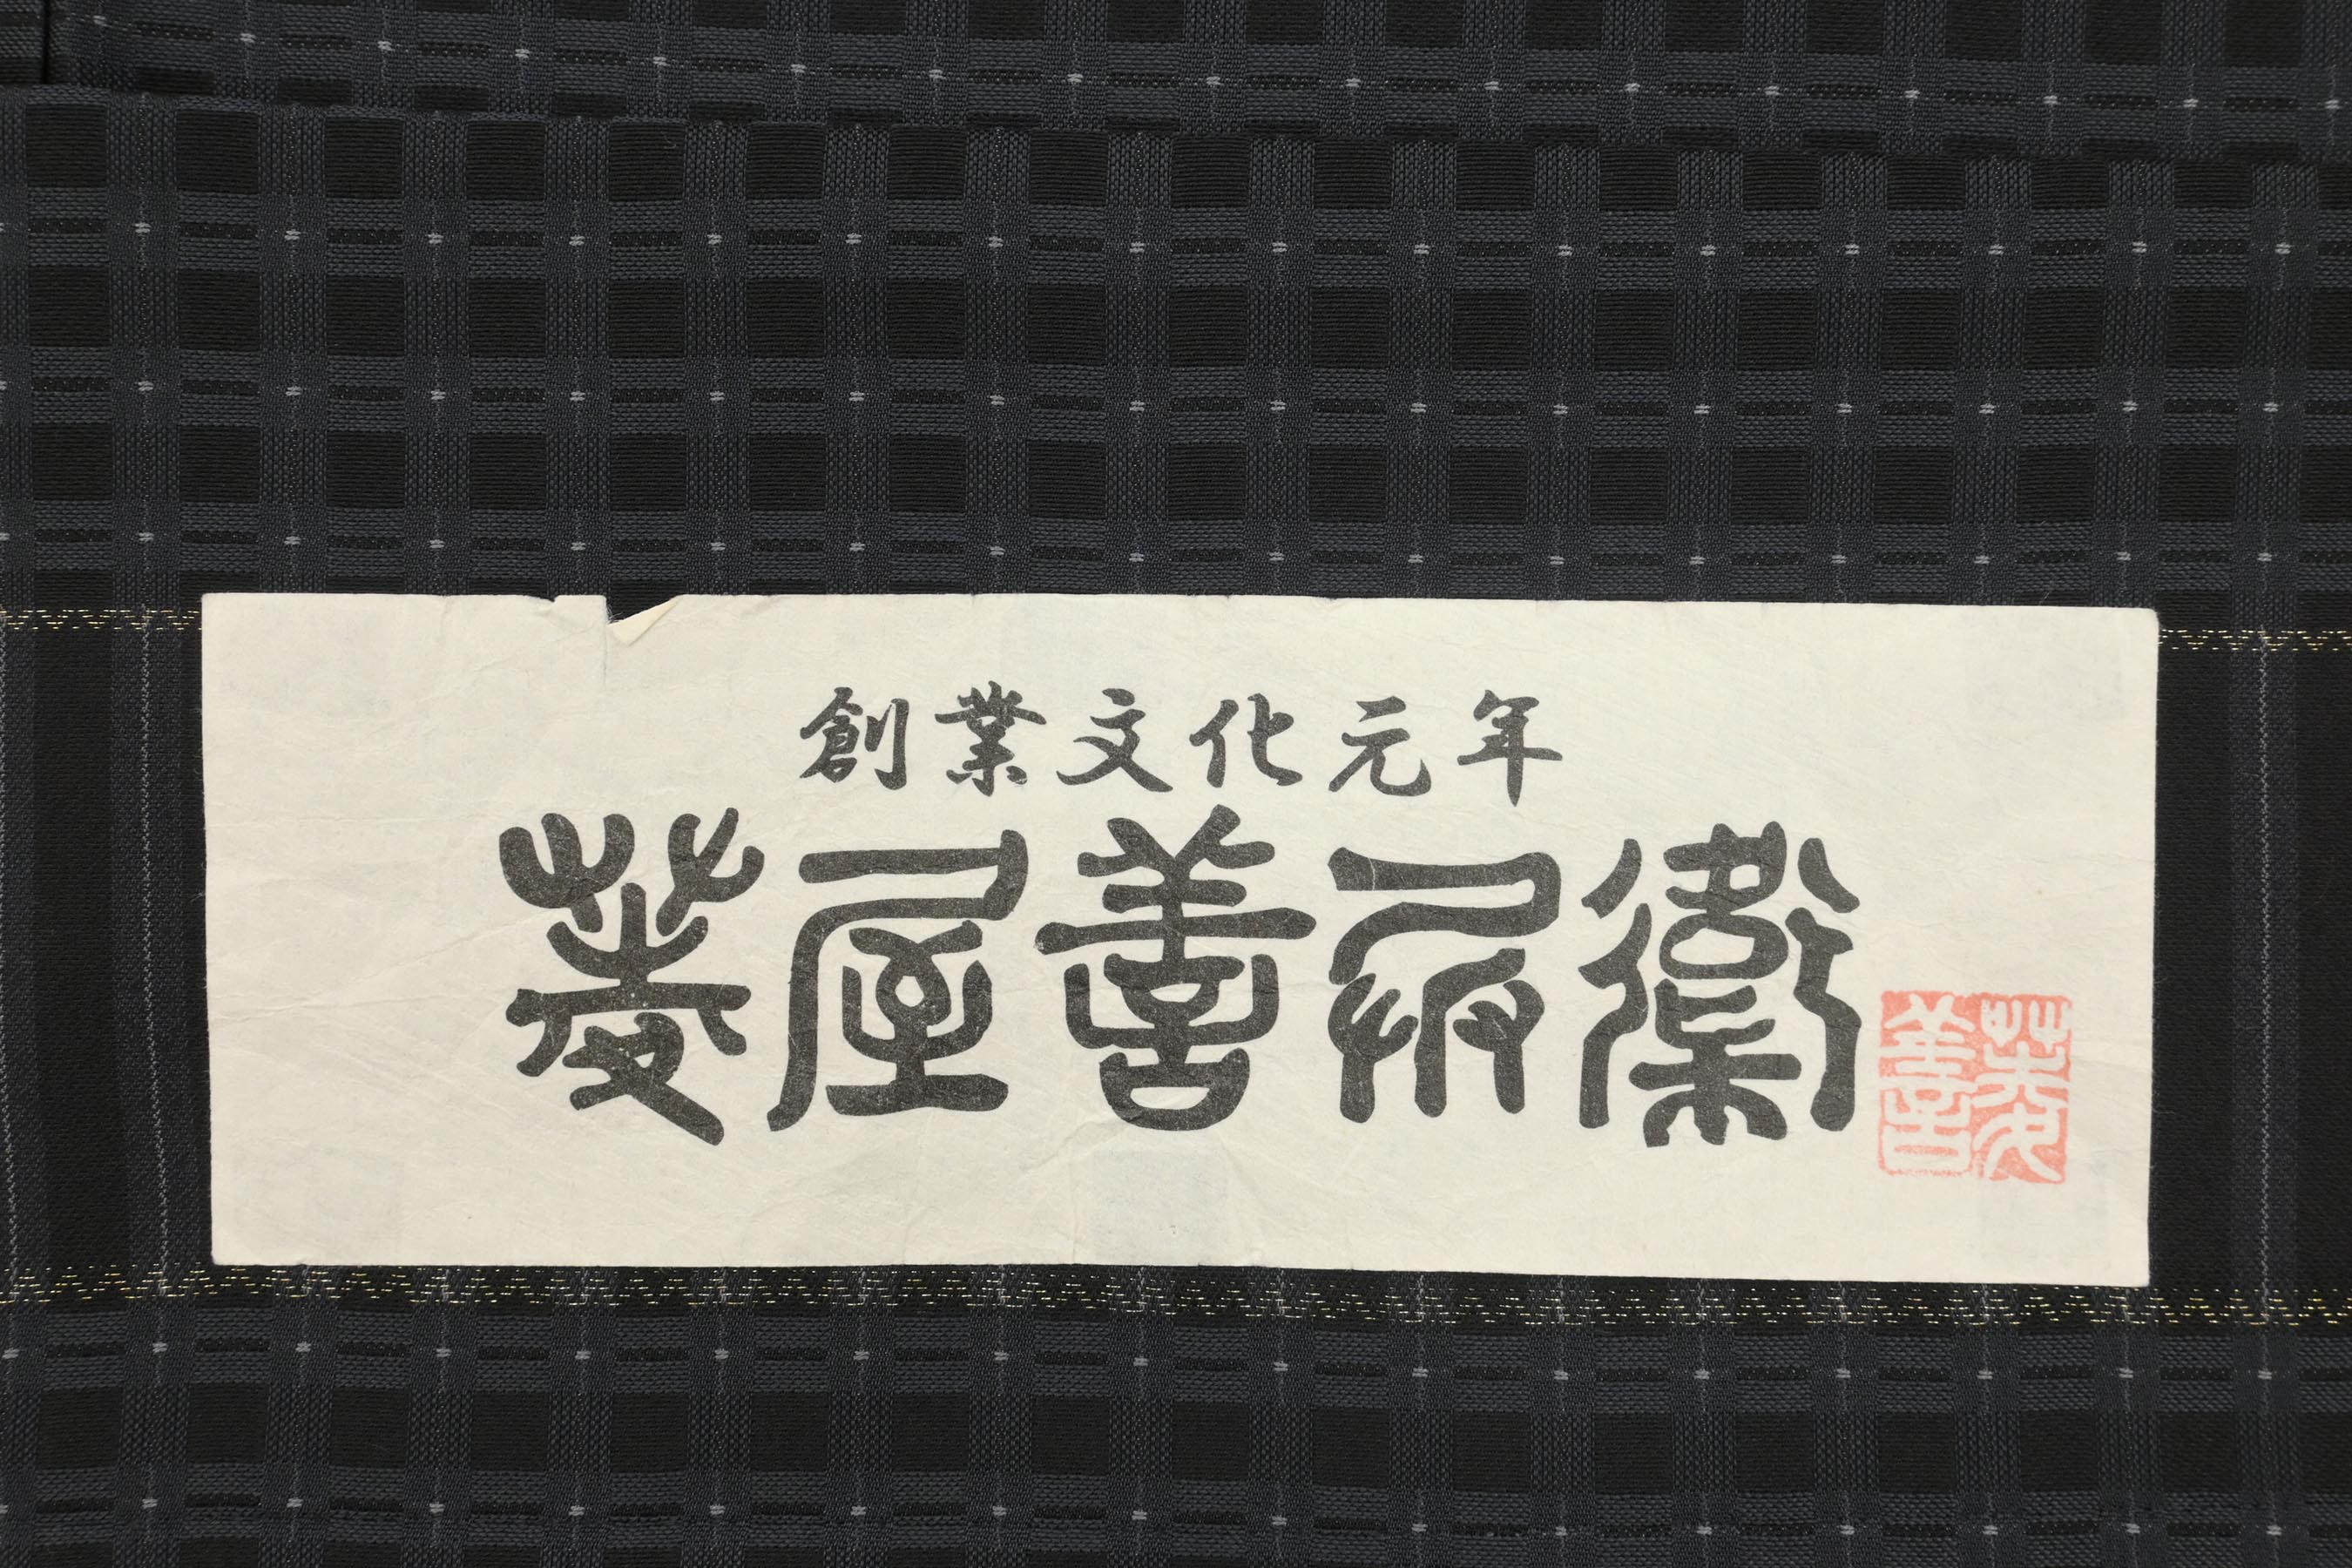 創業文化元年
菱屋善兵衞
菱善